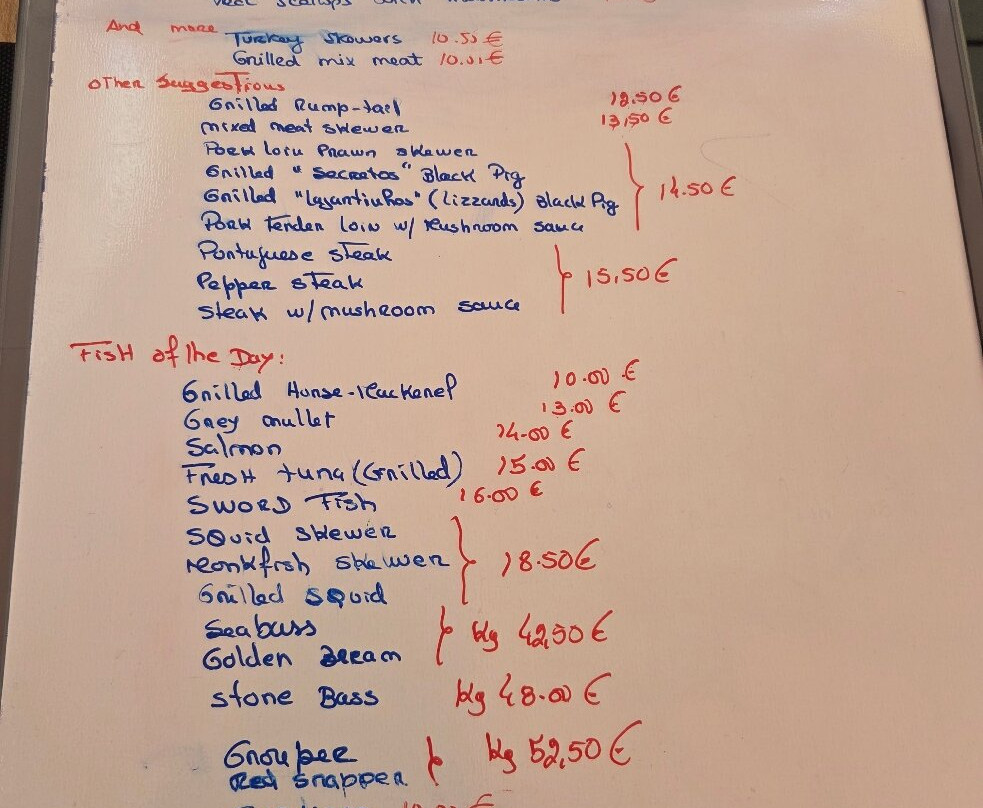 And more
Turkey Skowers 10.50 €
Grilled mix meat €
Other Suggestions
Grilled Rump-tail 12.50 €
mixed meat skewer 13,50 €
Pork loin Prawn skewer
Grilled "Secretos" Black Pig
Grilled "Lagartinhos" (Lizzards) Black Pig 14.50 €
Pork Tender loin w/ Mushroom sauce
Portuguese steak
Pepper steak 15,50 €
Steak w/ mushroom sauce
Fish of the Day:
Grilled Horse-Mackerel 10.00 €
Grey mullet 13.00 €
Salmon 14.00 €
Fresh tuna (Grilled) 15.00 €
SWORD Fish 16.00 €
Squid Skewer
Monkfish skewer 18.50 €
Grilled squid
Seabass kg 42,50 €
Golden Bream
Stone Bass kg 48.00 €
Grouper kg 52,50 €
Red Snapper